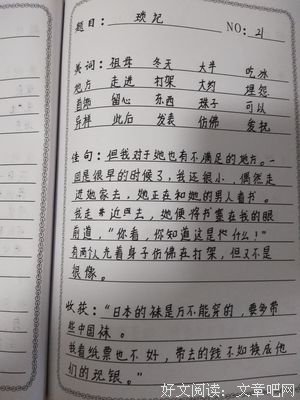 题目： 琐记 NO: 21
美词：祖母 冬天 大半 吃冰
地方 走进 打架 大约 埋怨
看饱 留心 东西 珠子 可以
异样 此后 发表 仿佛 爱抚
佳句：但我对于她也有不满足的地方。一
回是很早的时候了，我还很小，偶然走
进她家去，她正在和她的男人看书。
我走近去，她便将书塞在我的眼
前道，“你看，你知道这是什么！”
有两个人光着身子仿佛在打架，但又不是
很像。
收获：“日本的袜是万不能穿的，要多带
些中国袜。
我看纸票也不好，带去的钱不如换成他
们的现银。”
好文阅读：文章吧网